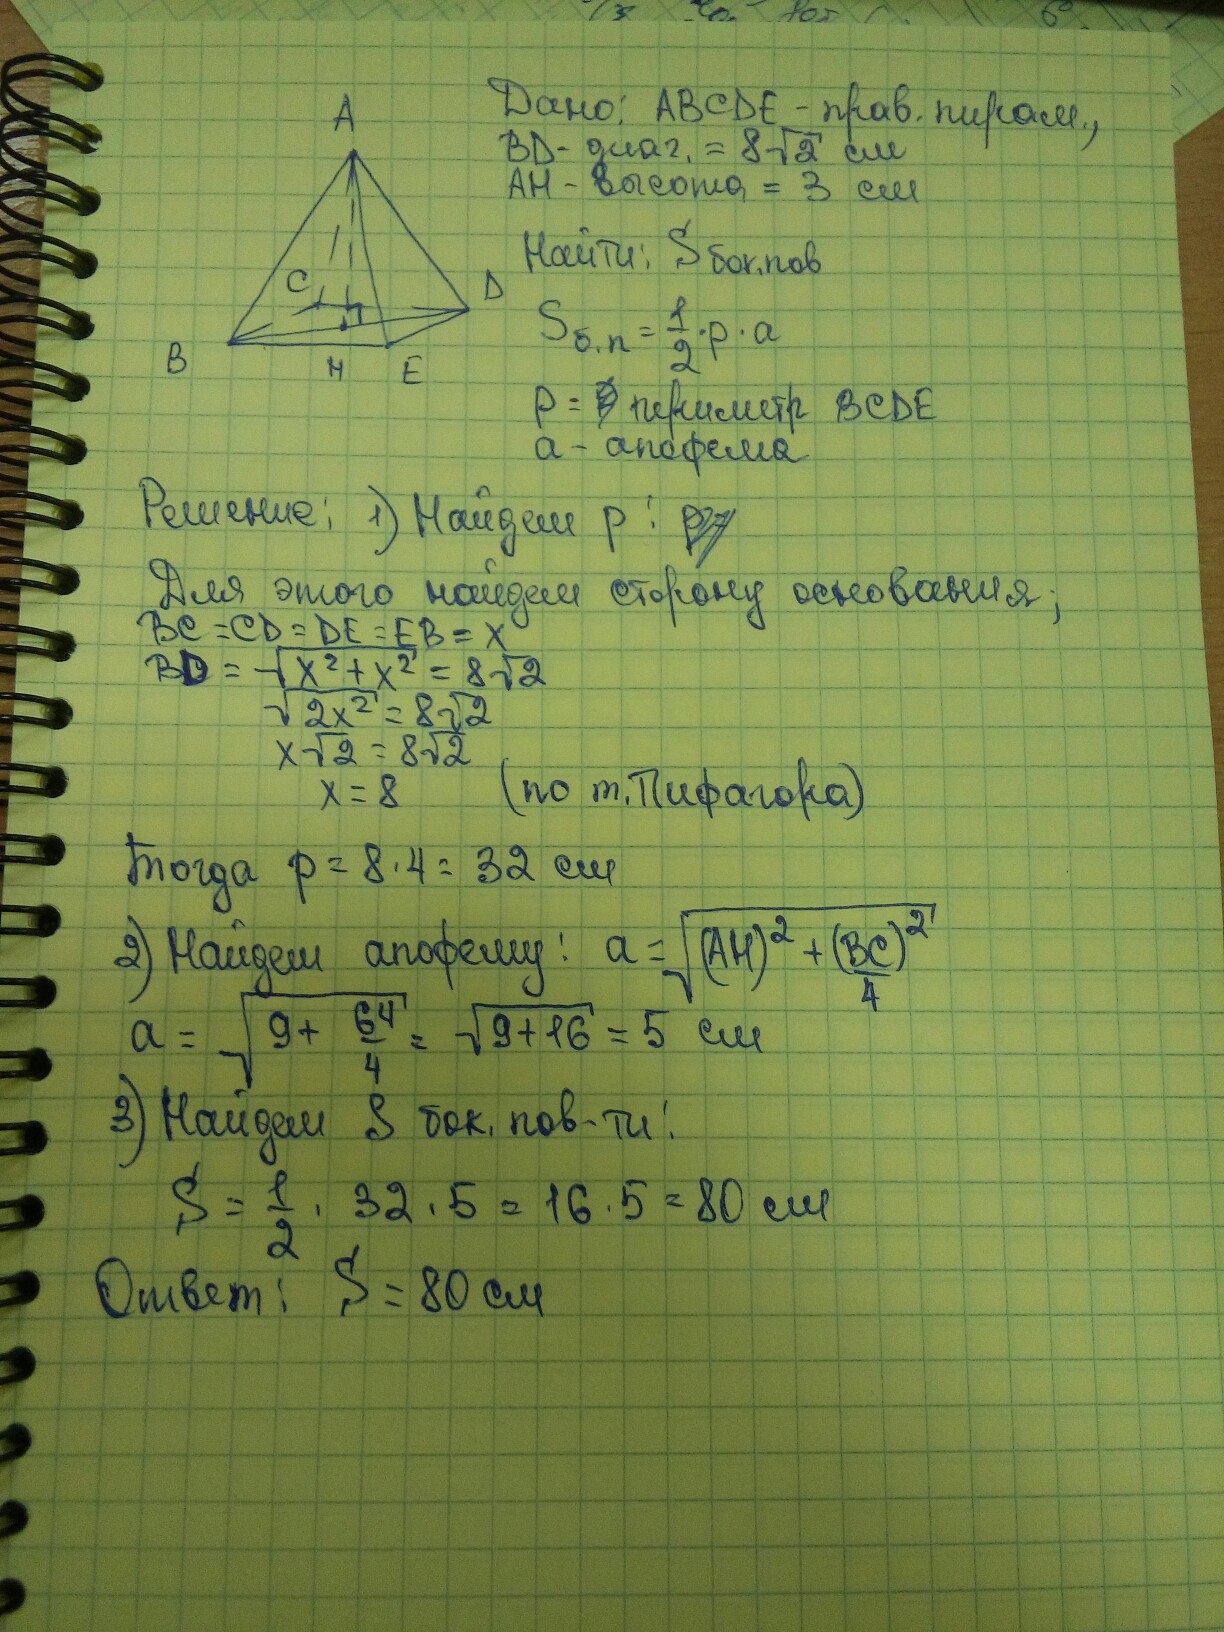 A
C
D
B
H
E
Дано: ABCDE - прав. пирам.,
BD - диаг. = 8√2 см
AH - высота = 3 см
Найти: S бок.пов
Sб.п = 1/2 · p · a
p = периметр BCDE
a - апофема
Решение: 1) Найдем p:
Для этого найдем сторону основания;
BC = CD = DE = EB = x
BD = √(x² + x²) = 8√2
√(2x²) = 8√2
x√2 = 8√2
x = 8 (по т. Пифагора)
Тогда p = 8 · 4 = 32 см
2) Найдем апофему: a = √((AH)² + (BC)²/4)
a = √(9 + 64/4) = √(9+16) = 5 см
3) Найдем S бок. пов-ти:
S = 1/2 · 32 · 5 = 16 · 5 = 80 см
Ответ: S = 80 см